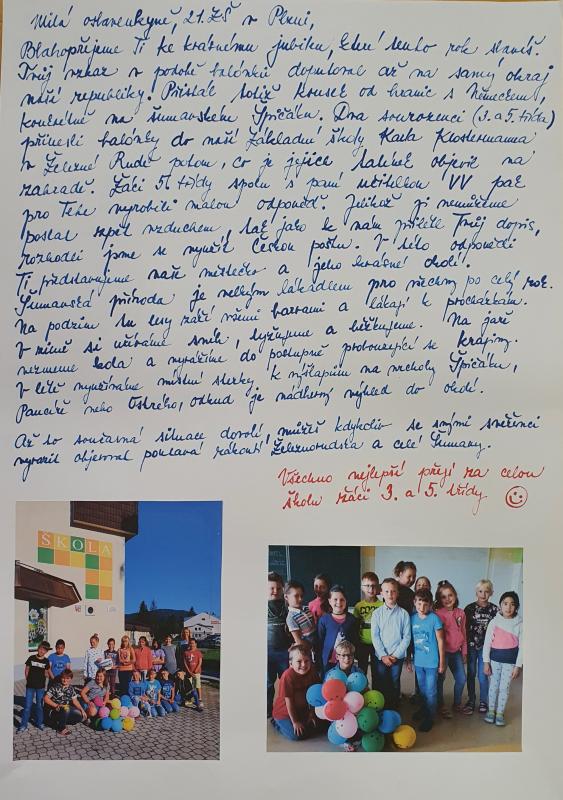 Milá oslavenkyně, 21. ZŠ v Plzni,
Blahopřejeme Ti ke krásnému jubileu, které tento rok slavíš.
Tvůj vzkaz v podobě balónků doputoval až na samý okraj
naší republiky. Přistál totiž kousek od hranic s Německem,
konkrétně na šumavském Špičáku. Dva sourozenci (3. a 5. třída)
přinesli balónky do naší Základní školy Karla Klostermanna
v Železné Rudě potom, co je jejich tatínek objevil na
zahradě. Žáci 5. třídy spolu s paní učitelkou VV pak
pro Tebe vyrobili malou odpověď. Jelikož ji nemůžeme
poslat zpět vzduchem, tak jako k nám přiletěl Tvůj dopis,
rozhodli jsme se využít Českou poštu. V této odpovědi
Ti představujeme naše městečko a jeho krásné okolí.
Šumavská příroda je velkým lákadlem pro všechny po celý rok.
Na podzim tu lesy září všemi barvami a lákají k procházkám.
V zimě si užíváme sníh, lyžujeme a běžkujeme. Na jaře
vezmeme kola a vyrážíme do postupně probouzející se krajiny.
V létě využíváme místní stezky k výšlapům na vrcholy Špičáku,
Pancíře nebo Ostrého, odkud je nádherný výhled do okolí.
Až to současná situace dovolí, můžeš kdykoliv se svými svěřenci
vyrazit objevovat poutavá zákoutí Železnorudska a celé Šumavy.
Všechno nejlepší přejí za celou
školu žáci 3. a 5. třídy.
ŠKOLA